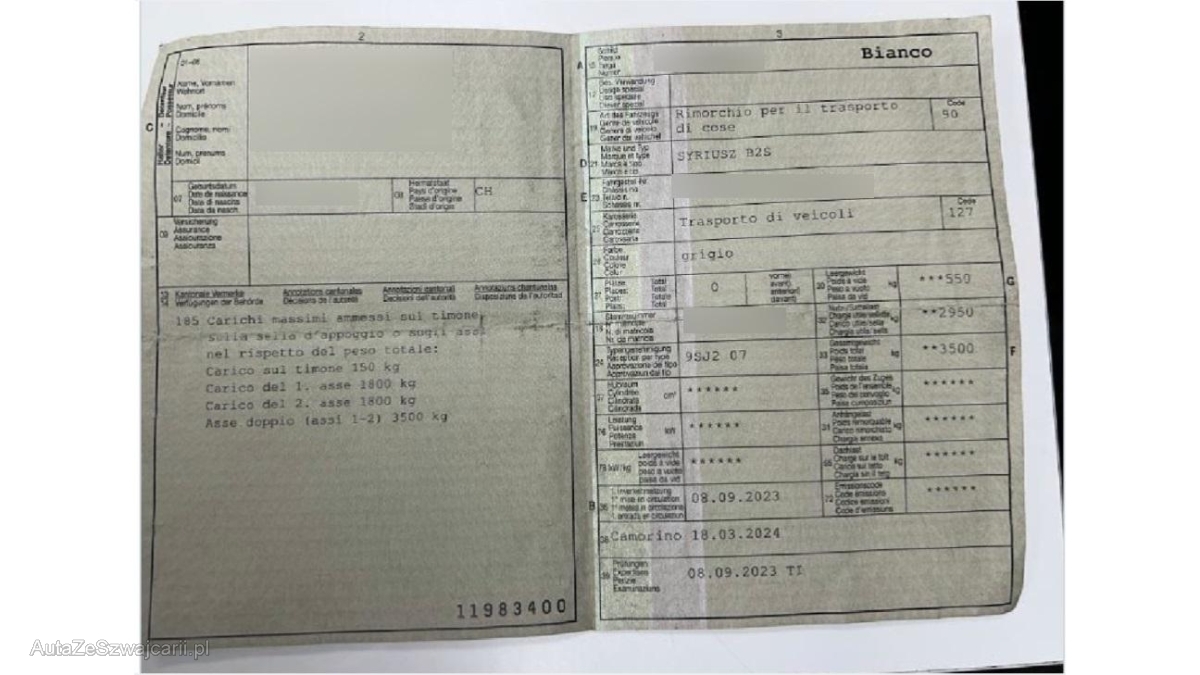 2
01-06
Name, Vornamen
Wohnort
Nom, prénoms
Domicile
Cognome, nomi
Domicilio
Num, prenums
Domicil
C
07
Geburtsdatum
Date de naissance
Data di nascita
Data da nasch.
Heimatstaat
Pays d'origine
Paese d'origine
Stadi d'origin
CH
09
Versicherung
Assurance
Assicurazione
Assicuranza
Kantonale Vermerke
Verfügungen der Behörde
Annotations cantonales
Décisions de l'autorité
Annotazioni cantonali
Decisioni dell'autorità
Annotaziuns chantunalas
Disposiziuns da l'autoritad
185 Carichi massimi ammessi sul timone,
sulla sella d'appoggio o sugli assi
nel rispetto del peso totale:
Carico sul timone 150 kg
Carico del 1. asse 1800 kg
Carico del 2. asse 1800 kg
Asse doppio (assi 1-2) 3500 kg
11983400
3
A
Schild
Plaque
Targa
Numer
Bianco
17
Usage spécial
Uso speciale
Diever spezial
19
Art des Fahrzeugs
Genre de véhicule
Genere di veicolo
Gener da vehichel
Rimorchio per il trasporto
di cose
Code
90
D
21
Marke und Typ
Marque et type
Marca e tipo
SYRIUSZ B2S
E
23
Fahrgestell Nr.
Châssis no.
Telaio n.
Schassis nr.
25
Karosserie
Carrosserie
Carrozzeria
Carossaria
Trasporto di veicoli
Code
127
26
Farbe
Couleur
Colore
Colur
grigio
27
Plätze: Total
Places: Total
Posti: Totale
Plazs: Total
0
vorne)
avant)
anteriori)
davant)
30
Leergewicht
Poids à vide
Peso a vuoto
Paisa da vid
kg
***550
G
18
Stammnummer
N° matricule
N. di matricola
Nr. da matricla
32
Nutz-/Sattellast
Charge utile/sellette
Carico utile/sella
Chargia utila/sella
kg
**2950
24
Typengenehmigung
Réception par type
Approvazione del tipo
Approvaziun dal tip
9SJ2 07
33
Gesamtgewicht
Poids total
Peso totale
Paisa totala
kg
**3500
F
37
Hubraum
Cylindrée
Cilindrata
Cilindrada
cm³
******
35
Gewicht des Zuges
Poids de l'ensemble
Peso del convoglio
Paisa cumposiziun
kg
******
76
Leistung
Puissance
Potenza
Prestaziun
kW
******
31
Anhängelast
Poids remorquable
Carico rimorchiato
Chargia annexa
kg
******
78
kW/kg
Leergewicht
poids à vide
peso a vuoto
paisa da vid
******
55
Dachlast
Charge sur le toit
Carico sul tetto
Chargia sin il tetg
kg
******
B
36
1. Inverkehrsetzung
1re mise en circulation
1a messa in circolazione
1. entrada en circulaziun
08.09.2023
72
Emissionscode
Code émissions
Codice emissioni
Code d'emissiuns
******
38
Camorino 18.03.2024
39
Prüfungen
Expertises
Perizie
Examinaziuns
08.09.2023 TI
AutaZeSzwajcarii.pl